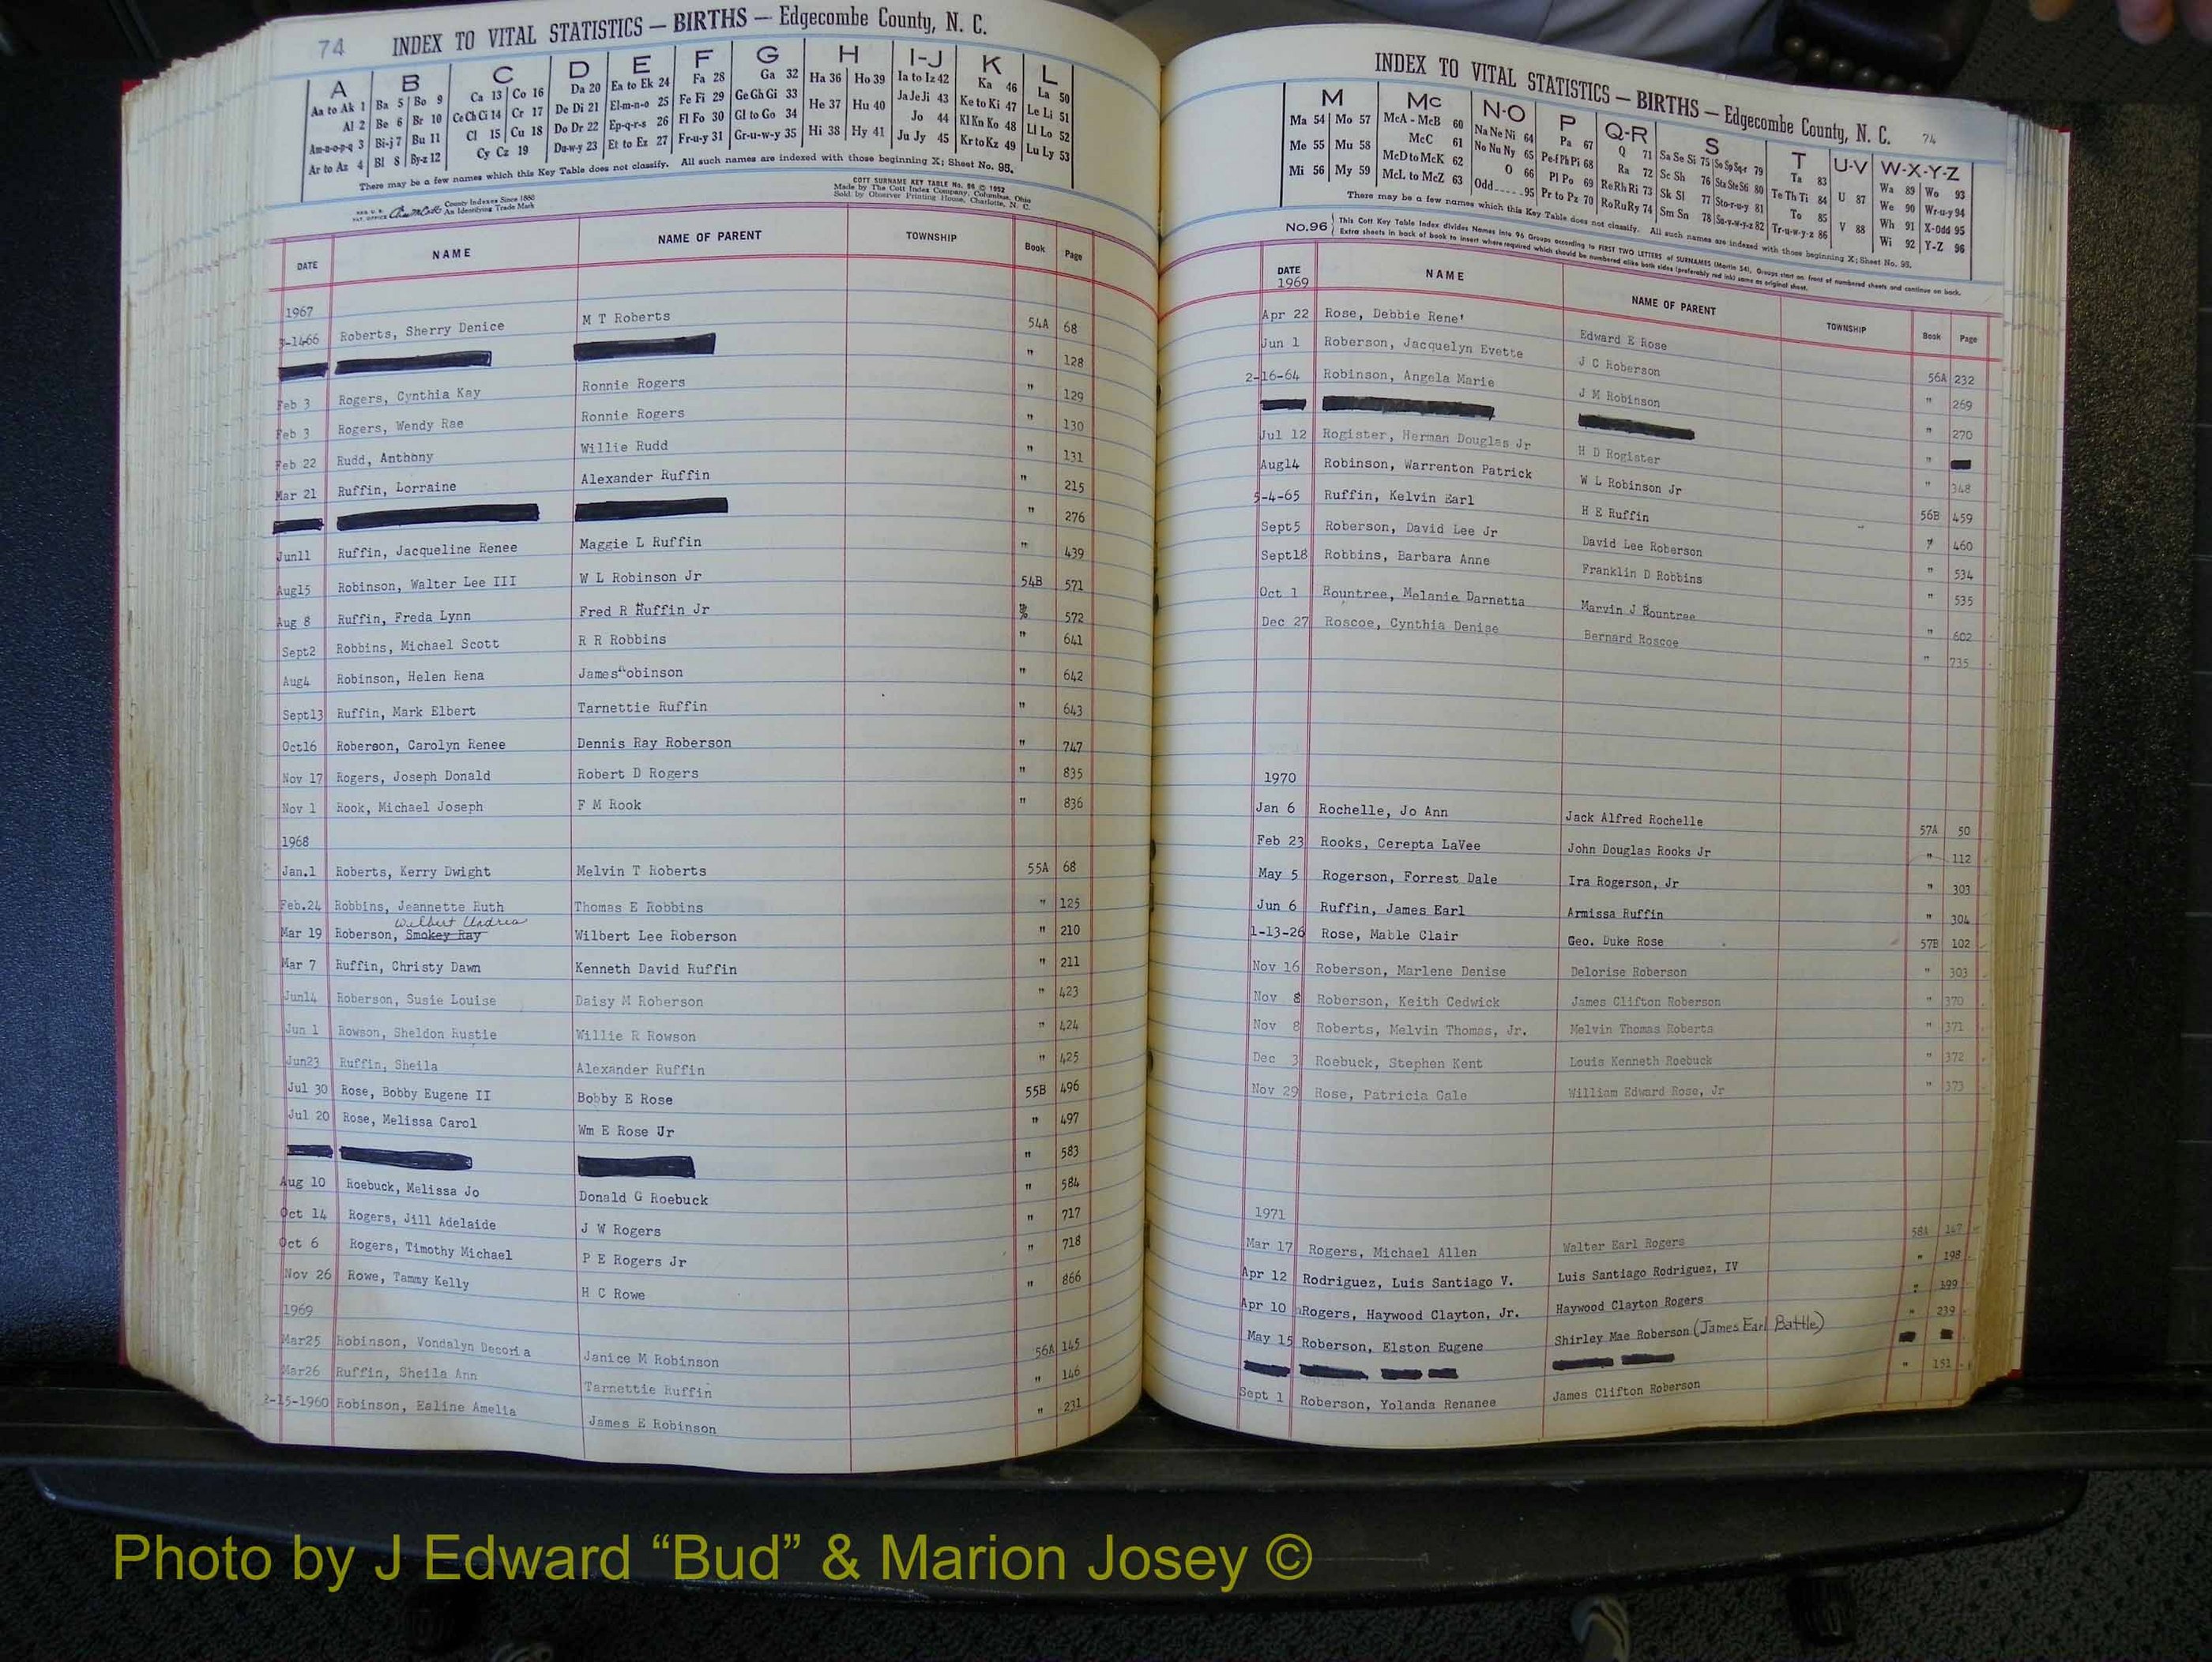 74 INDEX TO VITAL STATISTICS — BIRTHS — Edgecombe County, N. C.
A B C D E F G H I-J K L
Aa to Ak 1 Ba 5 Bo 9 Ca 13 Co 16 Da 20 Ea to Ek 24 Fa 28 Ga 32 Ha 36 Ho 39 Ia to Iz 42 Ka 46 La 50
Al 2 Be 6 Br 10 Ce Ch Ci 14 Cr 17 De Di 21 El-m-n-o 25 Fe Fi 29 Ge Gh Gi 33 He 37 Hu 40 Ja Je Ji 43 Ke to Ki 47 Le Li 51
Am-n-o-p-q 3 Bi-j 7 Bu 11 Cl 15 Cu 18 Do Dr 22 Ep-q-r-s 26 Fl Fo 30 Gl to Go 34 Hi 38 Hy 41 Jo 44 Kl Kn Ko 48 Ll Lo 52
Ar to Az 4 Bl 8 By-z 12 Cy Cz 19 Du-w-y 23 Et to Ez 27 Fr-u-y 31 Gr-u-w-y 35 Ju Jy 45 Kr to Kz 49 Lu Ly 53
There may be a few names which this Key Table does not classify. All such names are indexed with those beginning X; Sheet No. 95.
County Indexes Since 1888
An Identifying Trade Mark
COTT SURNAME KEY TABLE No. 96 © 1952
Made by The Cott Index Company, Columbus, Ohio
Sold by Observer Printing House, Charlotte, N. C.
DATE NAME NAME OF PARENT TOWNSHIP Book Page
1967
3-1466 Roberts, Sherry Denice M T Roberts 54A 68
" 128
Feb 3 Rogers, Cynthia Kay Ronnie Rogers " 129
Feb 3 Rogers, Wendy Rae Ronnie Rogers " 130
Feb 22 Rudd, Anthony Willie Rudd " 131
Mar 21 Ruffin, Lorraine Alexander Ruffin " 215
" 276
Jun11 Ruffin, Jacqueline Renee Maggie L Ruffin " 439
Aug15 Robinson, Walter Lee III W L Robinson Jr 54B 571
Aug 8 Ruffin, Freda Lynn Fred R Ruffin Jr 572
Sept2 Robbins, Michael Scott R R Robbins " 641
Aug4 Robinson, Helen Rena James Robinson " 642
Sept13 Ruffin, Mark Elbert Tarnettie Ruffin " 643
Oct16 Roberson, Carolyn Renee Dennis Ray Roberson " 747
Nov 17 Rogers, Joseph Donald Robert D Rogers " 835
Nov 1 Rook, Michael Joseph F M Rook " 836
1968
Jan.1 Roberts, Kerry Dwight Melvin T Roberts 55A 68
Feb.24 Robbins, Jeannette Ruth Thomas E Robbins " 125
Wilbert Undria
Mar 19 Roberson, Smokey Ray Wilbert Lee Roberson " 210
Mar 7 Ruffin, Christy Dawn Kenneth David Ruffin " 211
Jun14 Roberson, Susie Louise Daisy M Roberson " 423
Jun 1 Rowson, Sheldon Rustie Willie R Rowson " 424
Jun23 Ruffin, Sheila Alexander Ruffin " 425
Jul 30 Rose, Bobby Eugene II Bobby E Rose 55B 496
Jul 20 Rose, Melissa Carol Wm E Rose Jr " 497
" 583
Aug 10 Roebuck, Melissa Jo Donald G Roebuck " 584
Oct 14 Rogers, Jill Adelaide J W Rogers " 717
Oct 6 Rogers, Timothy Michael P E Rogers Jr " 718
Nov 26 Rowe, Tammy Kelly H C Rowe " 866
1969
Mar25 Robinson, Vondalyn Decoria Janice M Robinson 56A 145
Mar26 Ruffin, Sheila Ann Tarnettie Ruffin " 146
2-15-1960 Robinson, Ealine Amelia James E Robinson " 231
INDEX TO VITAL STATISTICS — BIRTHS — Edgecombe County, N. C. 74
M Mc N-O P Q-R S T U-V W-X-Y-Z
Ma 54 Mo 57 McA - McB 60 Na Ne Ni 64 Pa 67 Q 71 Sa Se Si 75 So Sp Sq-r 79 Ta 83 U 87 Wa 89 Wo 93
Me 55 Mu 58 McC 61 No Nu Ny 65 Pe-f Ph Pi 68 Ra 72 Sc Sh 76 Sta Ste S6 80 Te Th Ti 84 V 88 We 90 Wr-u-y 94
Mi 56 My 59 McD to McK 62 O 66 Pl Po 69 Re Rh Ri 73 Sk Sl 77 Sto-r-u-y 81 To 85 Wh 91 X-Odd 95
McL to McZ 63 Odd 95 Pr to Pz 70 Ro Ru Ry 74 Sm Sn 78 Su-v-w-y-z 82 Tr-u-w-y-z 86 Wi 92 Y-Z 96
There may be a few names which this Key Table does not classify. All such names are indexed with those beginning X; Sheet No. 95.
No.96 This Cott Key Table Index divides Names into 96 Groups according to FIRST TWO LETTERS of SURNAMES (Martin 54). Groups start on front of numbered sheets and continue on back.
Extra sheets in back of book to insert where required which should be numbered alike both sides (preferably red ink) same as original sheet.
DATE NAME NAME OF PARENT TOWNSHIP Book Page
1969
Apr 22 Rose, Debbie Rene' Edward E Rose 56A 232
Jun 1 Roberson, Jacquelyn Evette J C Roberson " 269
2-16-64 Robinson, Angela Marie J M Robinson " 270
"
Jul 12 Rogister, Herman Douglas Jr H D Rogister " 348
Aug14 Robinson, Warrenton Patrick W L Robinson Jr 56B 459
5-4-65 Ruffin, Kelvin Earl H E Ruffin 460
Sept5 Roberson, David Lee Jr David Lee Roberson " 534
Sept18 Robbins, Barbara Anne Franklin D Robbins " 535
Oct 1 Rountree, Melanie Darnetta Marvin J Rountree " 602
Dec 27 Roscoe, Cynthia Denise Bernard Roscoe " 735
1970
Jan 6 Rochelle, Jo Ann Jack Alfred Rochelle 57A 50
Feb 23 Rooks, Cerepta LaVee John Douglas Rooks Jr " 112
May 5 Rogerson, Forrest Dale Ira Rogerson, Jr " 303
Jun 6 Ruffin, James Earl Armissa Ruffin " 304
1-13-26 Rose, Mable Clair Geo. Duke Rose 57B 102
Nov 16 Roberson, Marlene Denise Delorise Roberson " 303
Nov 8 Roberson, Keith Cedwick James Clifton Roberson " 370
Nov 8 Roberts, Melvin Thomas, Jr. Melvin Thomas Roberts " 371
Dec 3 Roebuck, Stephen Kent Louis Kenneth Roebuck " 372
Nov 29 Rose, Patricia Gale William Edward Rose, Jr " 373
1971
Mar 17 Rogers, Michael Allen Walter Earl Rogers 58A 147
Apr 12 Rodriguez, Luis Santiago V. Luis Santiago Rodriguez, IV " 198
Apr 10 Rogers, Haywood Clayton, Jr. Haywood Clayton Rogers " 199
May 15 Roberson, Elston Eugene Shirley Mae Roberson (James Earl Battle) " 239
Sept 1 Roberson, Yolanda Renanee James Clifton Roberson " 151
Photo by J Edward “Bud” & Marion Josey ©